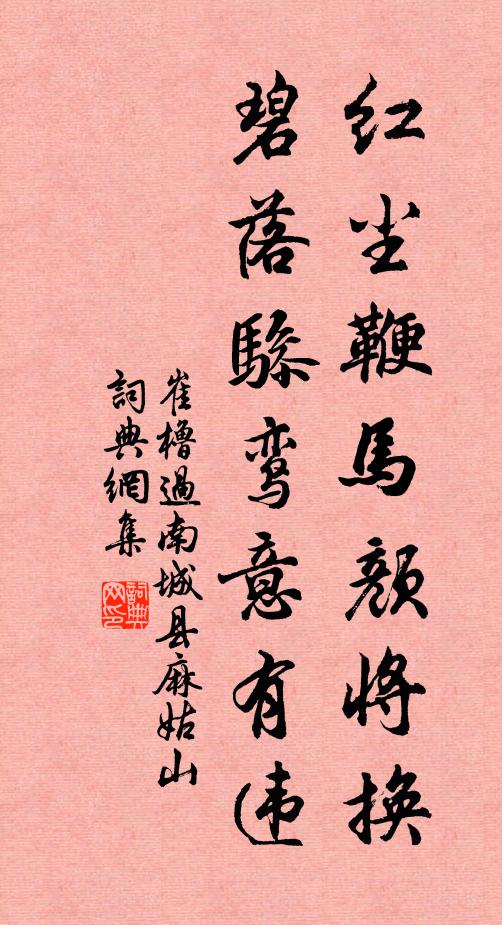 红尘鞭馬顔将换
碧落驂鸾意有违
崔櫓過南城县麻姑山
詞典網集
詞典网印